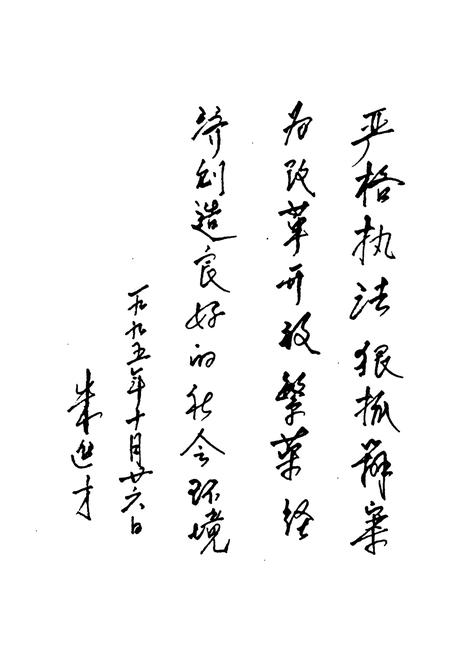 严格执法狠抓办案
为改革开放繁荣经
济创造良好的社会环境
一九九五年十月廿六日
朱进才